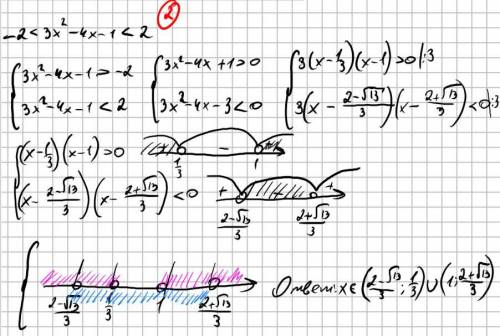 2
-2 < 3x² - 4x - 1 < 2
{ 3x² - 4x - 1 > -2
3x² - 4x - 1 < 2
{ 3x² - 4x + 1 > 0
3x² - 4x - 3 < 0
{ 3(x - 1/3)(x - 1) > 0 |:3
3(x - (2-√13)/3)(x - (2+√13)/3) < 0 |:3
{ (x - 1/3)(x - 1) > 0
(x - (2-√13)/3)(x - (2+√13)/3) < 0
- 
1/3 1
+ - +
(2-√13)/3 (2+√13)/3
{
(2-√13)/3 1/3 1 (2+√13)/3
Ответ: x ∈ ((2-√13)/3 ; 1/3) ∪ (1; (2+√13)/3)